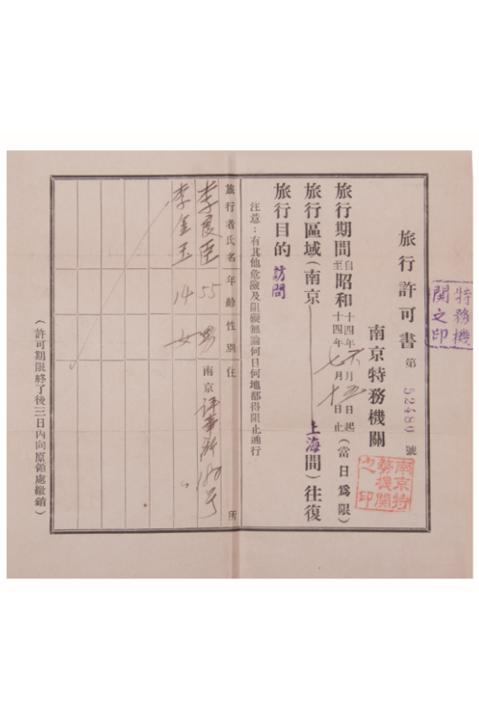 旅行許可書 第 52480 號
南京特務機關
南京特務機關之印
特務機關之印
旅行期間 自昭和十四年六月 日起 至 十四年七月十日止 (當日爲限)
旅行區域 (南京 上海間) 往復
旅行目的 訪問
注意:有其他危險及阻礙無論何日何地都得阻止通行
旅行者氏名 年齡 性別 住 所
李良臣 55 男 南京 評事街 180号
李金玉 14 女 〃
(許可期限終了後三日內向原領處繳銷)